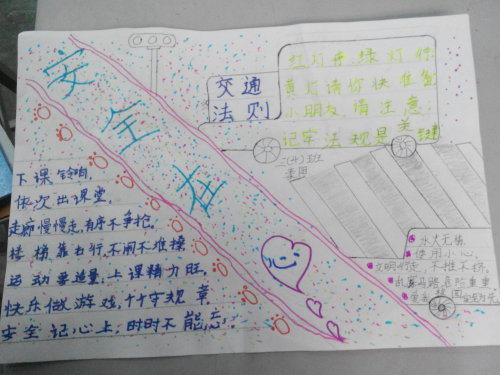 安全在
交通
法则
红灯停,绿灯行
黄灯请你快准备
小朋友,请注意,
记牢法规是关键
三(4)班
下课铃响,
依次出课堂,
走廊慢慢走,有序不争抢。
楼梯靠右行,不闹不推操
运动要适量,上课精力旺。
快乐做游戏,十守规章
安全记心上,时时不能忘。
水火无情,
使用小心。
文明行走,不推不挤。
乱穿马路危险重重